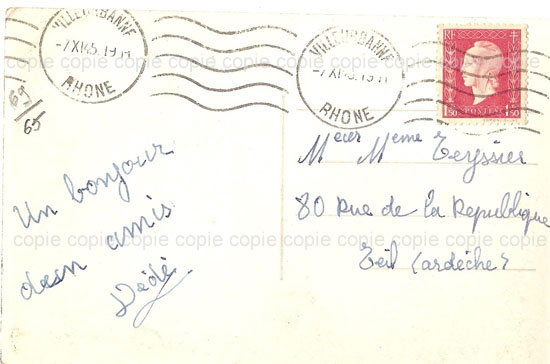 VILLEURBANNE
-7 XI 45. 19 H
RHONE
VILLEURBANNE
-7 XI 45. 19 H
RHONE
RF
POSTES
1f50 1f50
69/65
Un bonjour
d'esn amis
Dédé
Meier Meme Teyssier
80 Rue de la Republique
Teil (ardéche)
copie copie copie copie copie copie copie copie copie
copie copie copie copie copie copie copie copie copie
copie copie copie copie copie copie copie copie copie